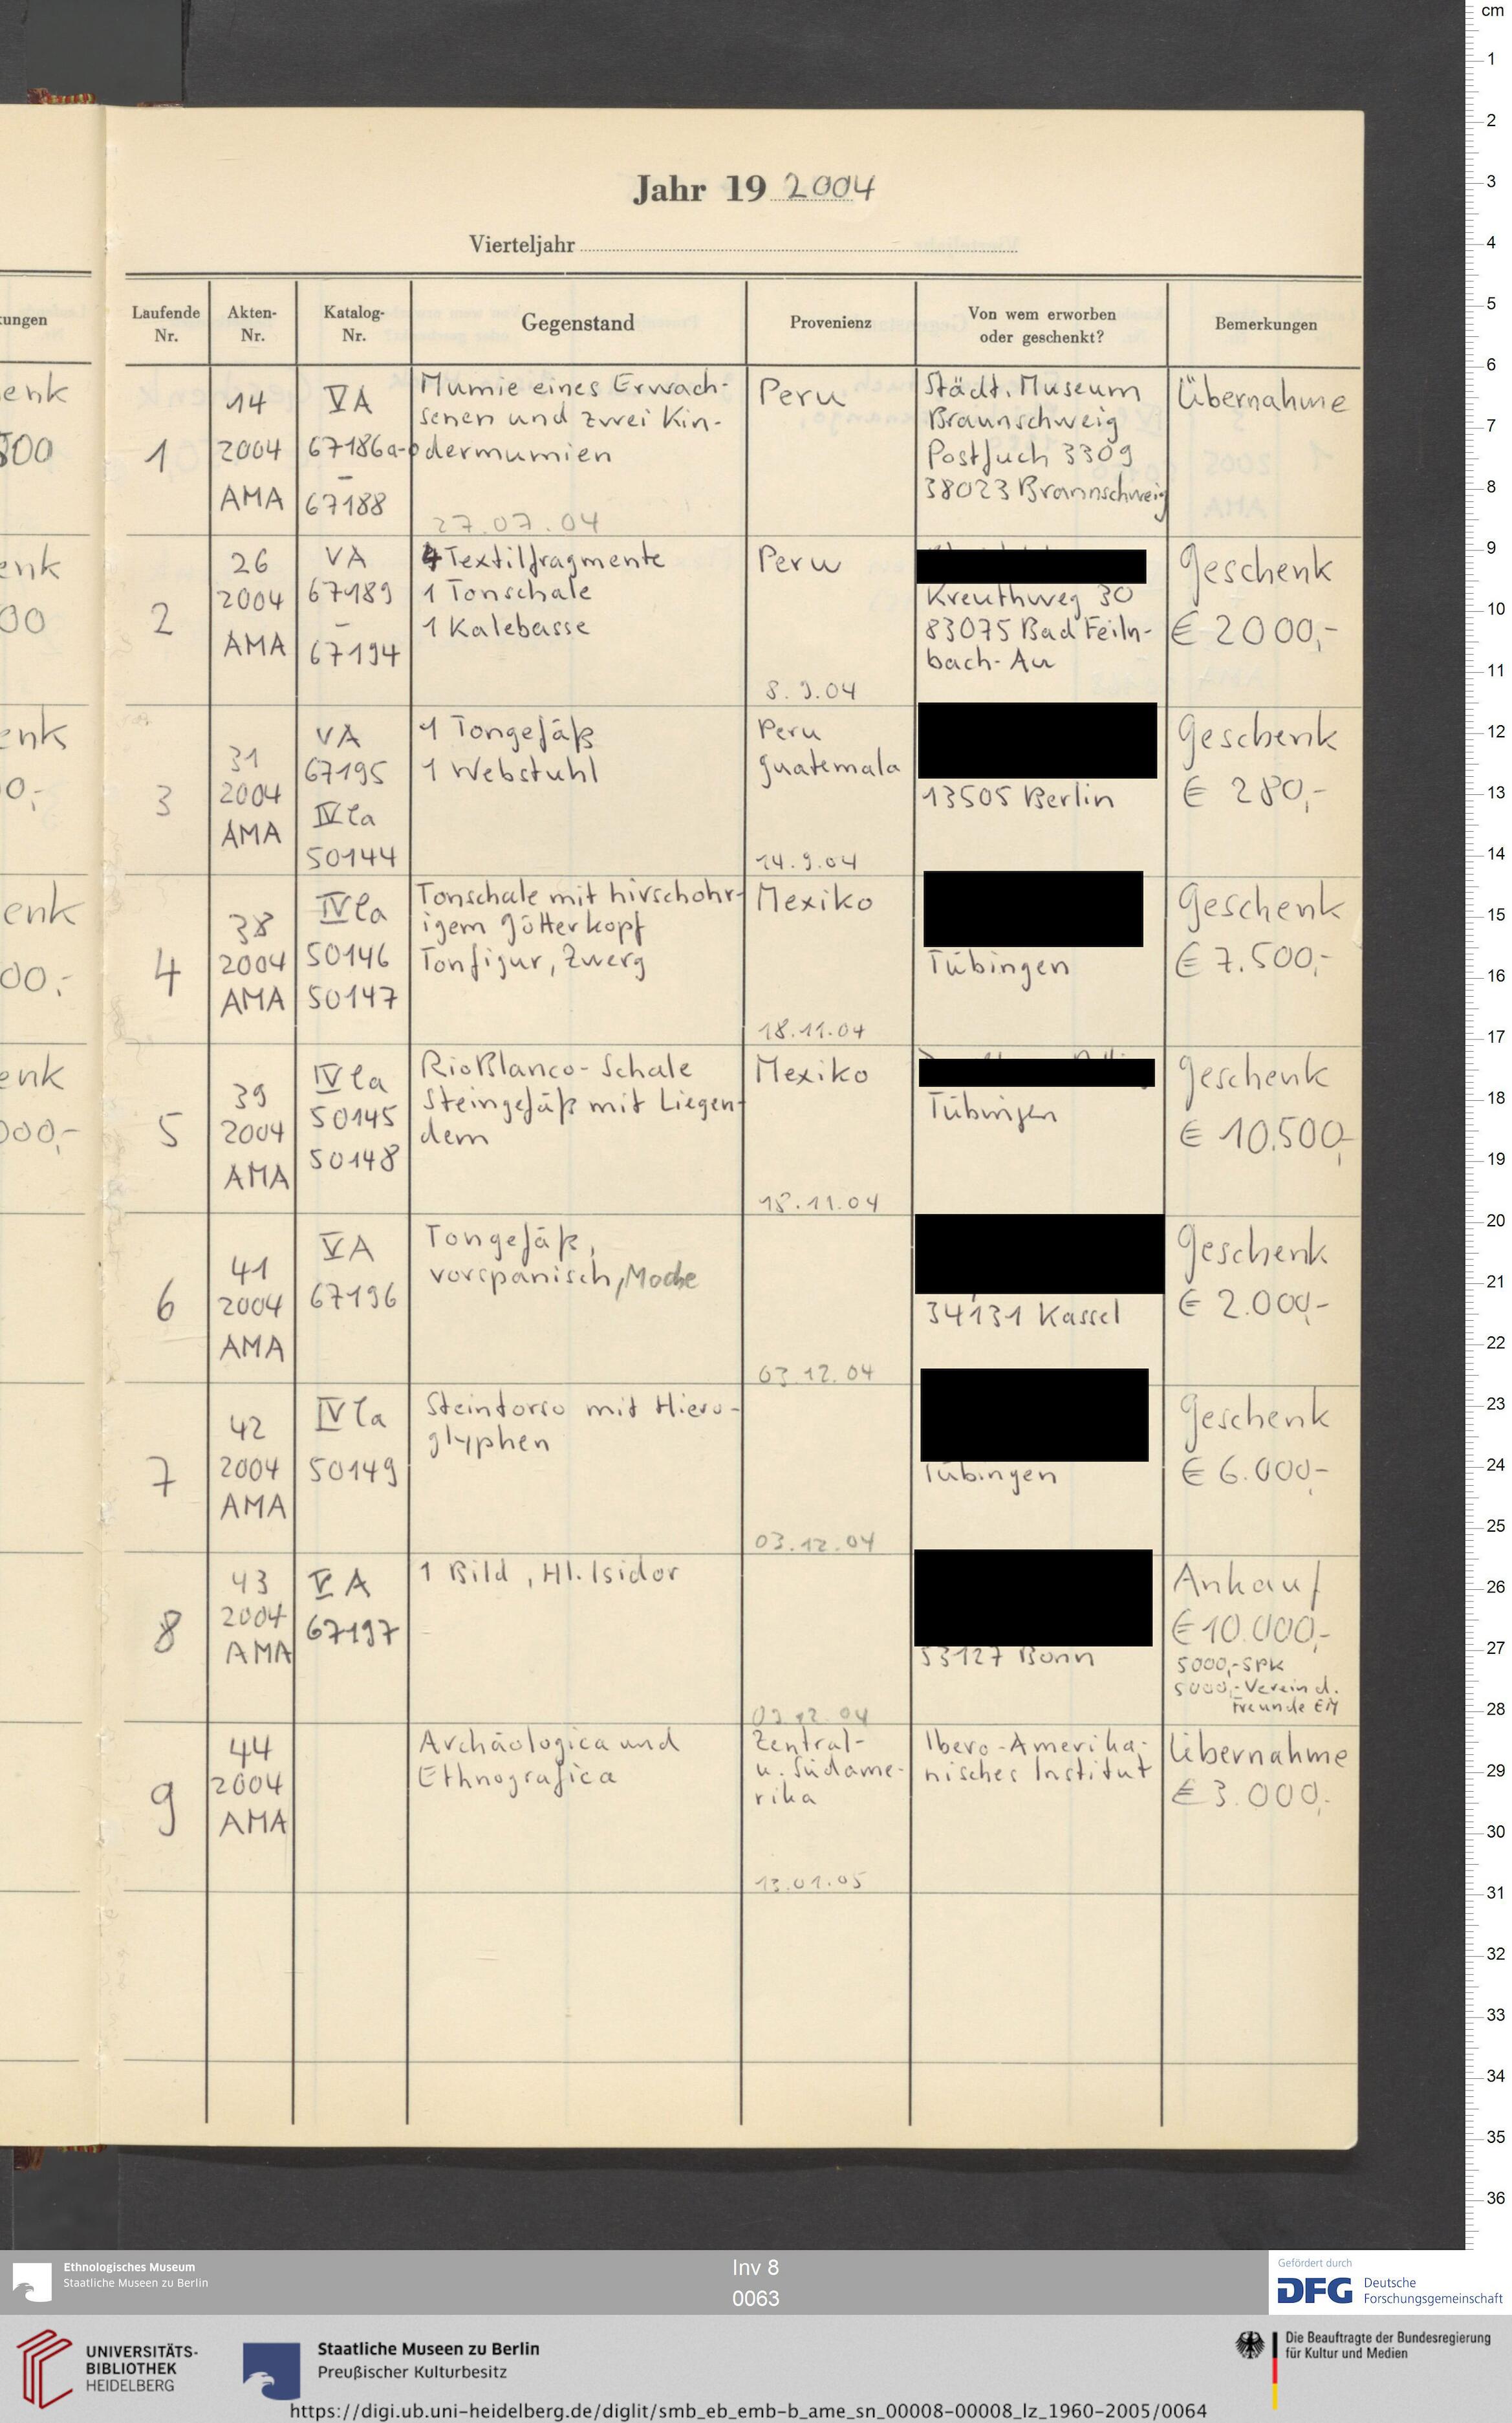 Jahr 19 2004
Vierteljahr
Laufende Nr.
Akten-Nr.
Katalog-Nr.
Gegenstand
Provenienz
Von wem erworben oder geschenkt?
Bemerkungen
ungen
1
14
2004
AMA
VA
67186a-
–
67188
Mumie eines Erwach-
senen und zwei Kin-
dermumien
27.07.04
Peru
Städt. Museum
Braunschweig
Postfach 3309
38023 Braunschweig
Übernahme
2
26
2004
AMA
VA
67189
–
67194
4 Textilfragmente
1 Tonschale
1 Kalebasse
Peru
8.9.04
Kreuthweg 30
83075 Bad Feiln-
bach-Au
Geschenk
€ 2000,-
3
31
2004
AMA
VA
67195
IV Ca
50144
1 Tongefäß
1 Webstuhl
Peru
Guatemala
14.9.04
13505 Berlin
Geschenk
€ 280,-
4
38
2004
AMA
IV Ca
50146
50147
Tonschale mit hirschohr-
igem Götterkopf
Tonfigur, Zwerg
Mexiko
18.11.04
Tübingen
Geschenk
€ 7.500,-
5
39
2004
AMA
IV Ca
50145
50148
Rio Blanco-Schale
Steingefäß mit Liegen-
dem
Mexiko
18.11.04
Tübingen
Geschenk
€ 10.500,-
6
41
2004
AMA
VA
67196
Tongefäß,
vorspanisch, Moche
03.12.04
34131 Kassel
Geschenk
€ 2.000,-
7
42
2004
AMA
IV Ca
50149
Steintorso mit Hiero-
glyphen
03.12.04
Tübingen
Geschenk
€ 6.000,-
8
43
2004
AMA
VA
67197
1 Bild, Hl. Isidor
53127 Bonn
Ankauf
€ 10.000,-
5000,- SPK
5000,- Verein d.
Freunde EM
9
44
2004
AMA
Archäologica und
Ethnografica
Zentral-
u. Südame-
rika
13.01.05
Ibero-Amerika-
nisches Institut
Übernahme
€ 3.000,-
cm
1
2
3
4
5
6
7
8
9
10
11
12
13
14
15
16
17
18
19
20
21
22
23
24
25
26
27
28
29
30
31
32
33
34
35
36
Ethnologisches Museum
Staatliche Museen zu Berlin
Inv 8
0063
Gefördert durch
DFG Deutsche
Forschungsgemeinschaft
UNIVERSITÄTS-
BIBLIOTHEK
HEIDELBERG
Staatliche Museen zu Berlin
Preußischer Kulturbesitz
Die Beauftragte der Bundesregierung
für Kultur und Medien
https://digi.ub.uni-heidelberg.de/diglit/smb_eb_emb-b_ame_sn_00008-00008_lz_1960-2005/0064